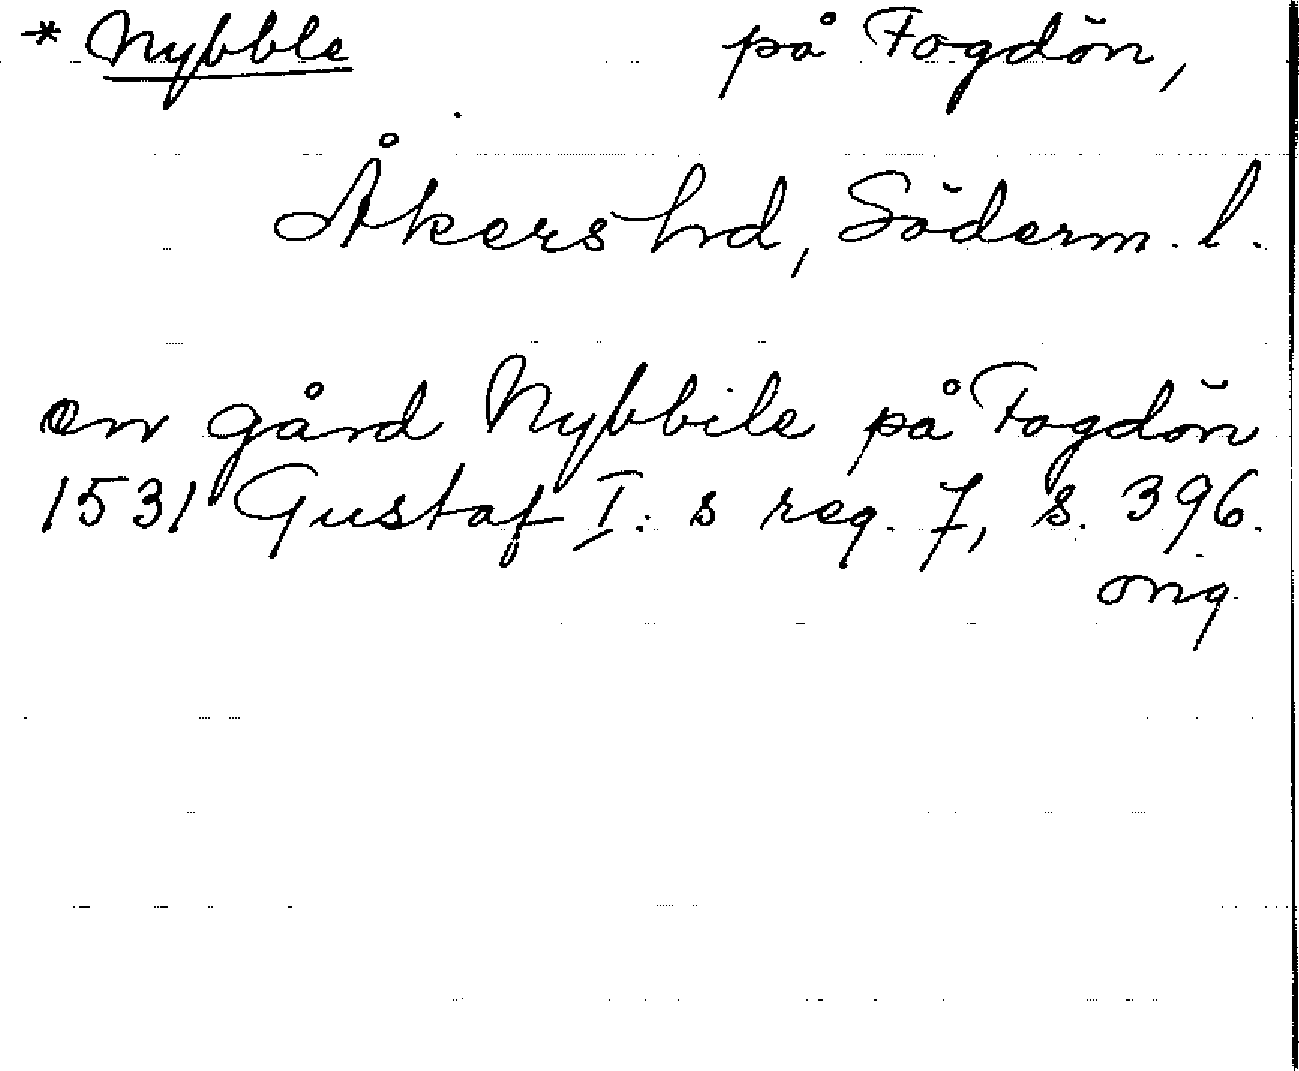 * Nybble på Fogdön,
Åkers hd, Söderm. l.
en gård Nybbile på Fogdön
1531 Gustaf I: s reg. 7, s. 396.
orig.